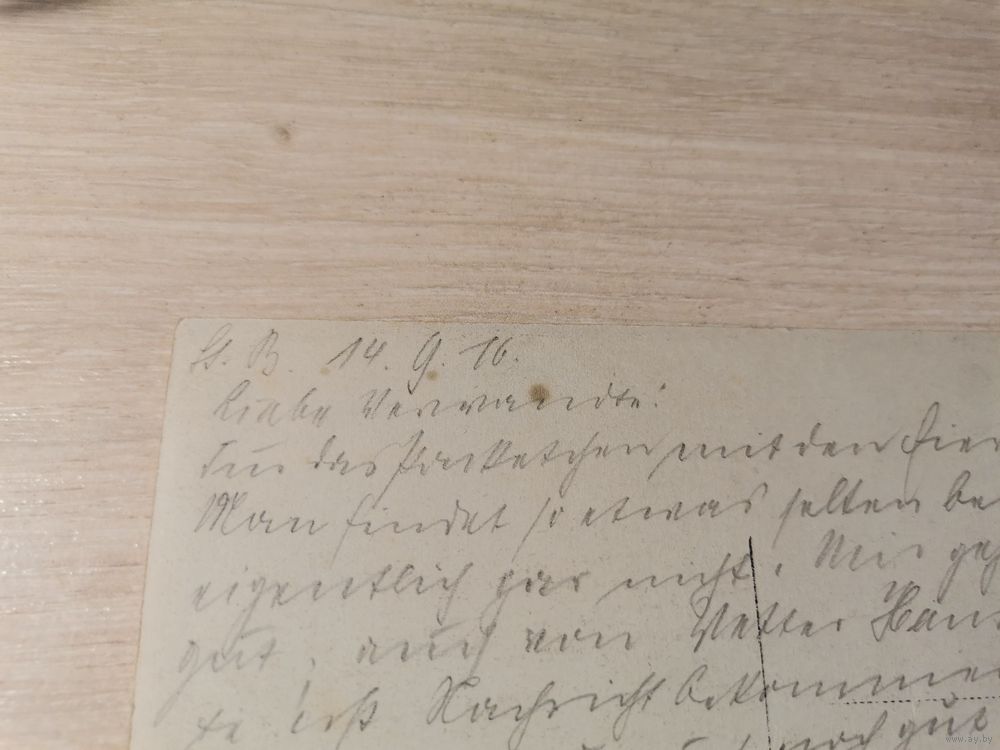 St. B. 14. 9. 16.
Liebe Verwandte!
Für das Packetchen mit den
Man findet so etwas selten
eigentlich gar nicht. Mir
gut, auch von Vetter
Nachricht bekommen
noch gut
www.ay.by